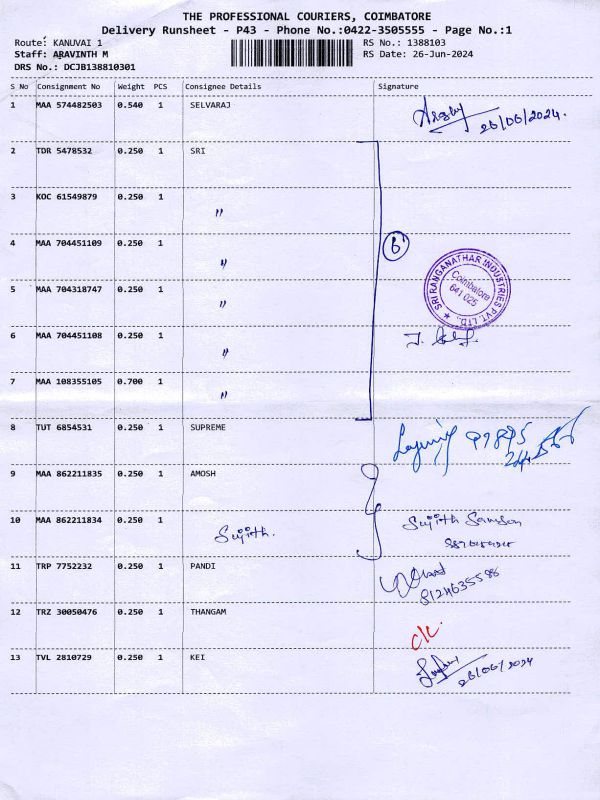 THE PROFESSIONAL COURIERS, COIMBATORE
Delivery Runsheet - P43 - Phone No.:0422-3505555 - Page No.:1
Route: KANUVAI 1 RS No.: 1388103
Staff: ARAVINTH M RS Date: 26-Jun-2024
DRS No.: DCJB138810301
S No Consignment No Weight PCS Consignee Details Signature
1 MAA 574482503 0.540 1 SELVARAJ
26/06/2024.
2 TDR 5478532 0.250 1 SRI
3 KOC 61549879 0.250 1 "
4 MAA 704451109 0.250 1 "
5 MAA 704318747 0.250 1 "
SRI RANGANATHAR INDUSTRIES PVT. LTD.,
Coimbatore
641 025
6 MAA 704451108 0.250 1 "
7 MAA 108355105 0.700 1 "
8 TUT 6854531 0.250 1 SUPREME
9 MAA 862211835 0.250 1 AMOSH
10 MAA 862211834 0.250 1 Sujith. Sujith Samson
11 TRP 7752232 0.250 1 PANDI
8124635588
12 TRZ 30050476 0.250 1 THANGAM
c/c.
13 TVL 2810729 0.250 1 KEI
26/06/2024